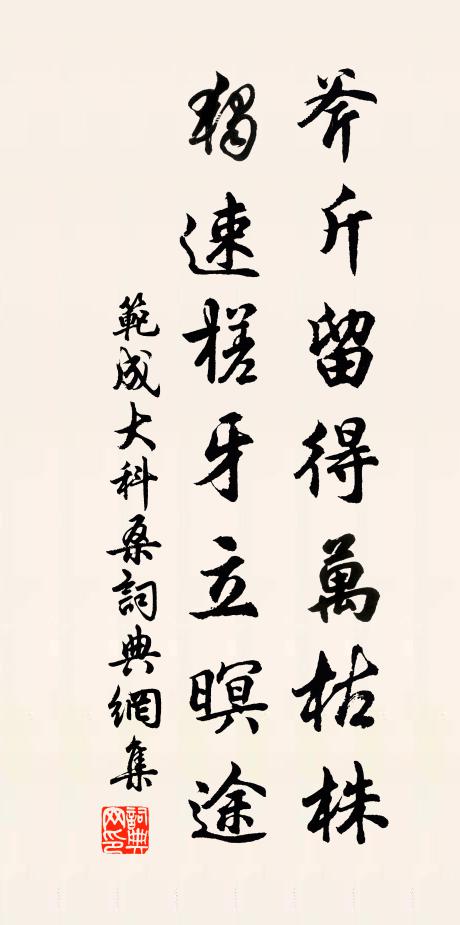 斧斤留得萬枯株
獨速槎牙立暝途
範成大科桑詞典網集
詞典网印